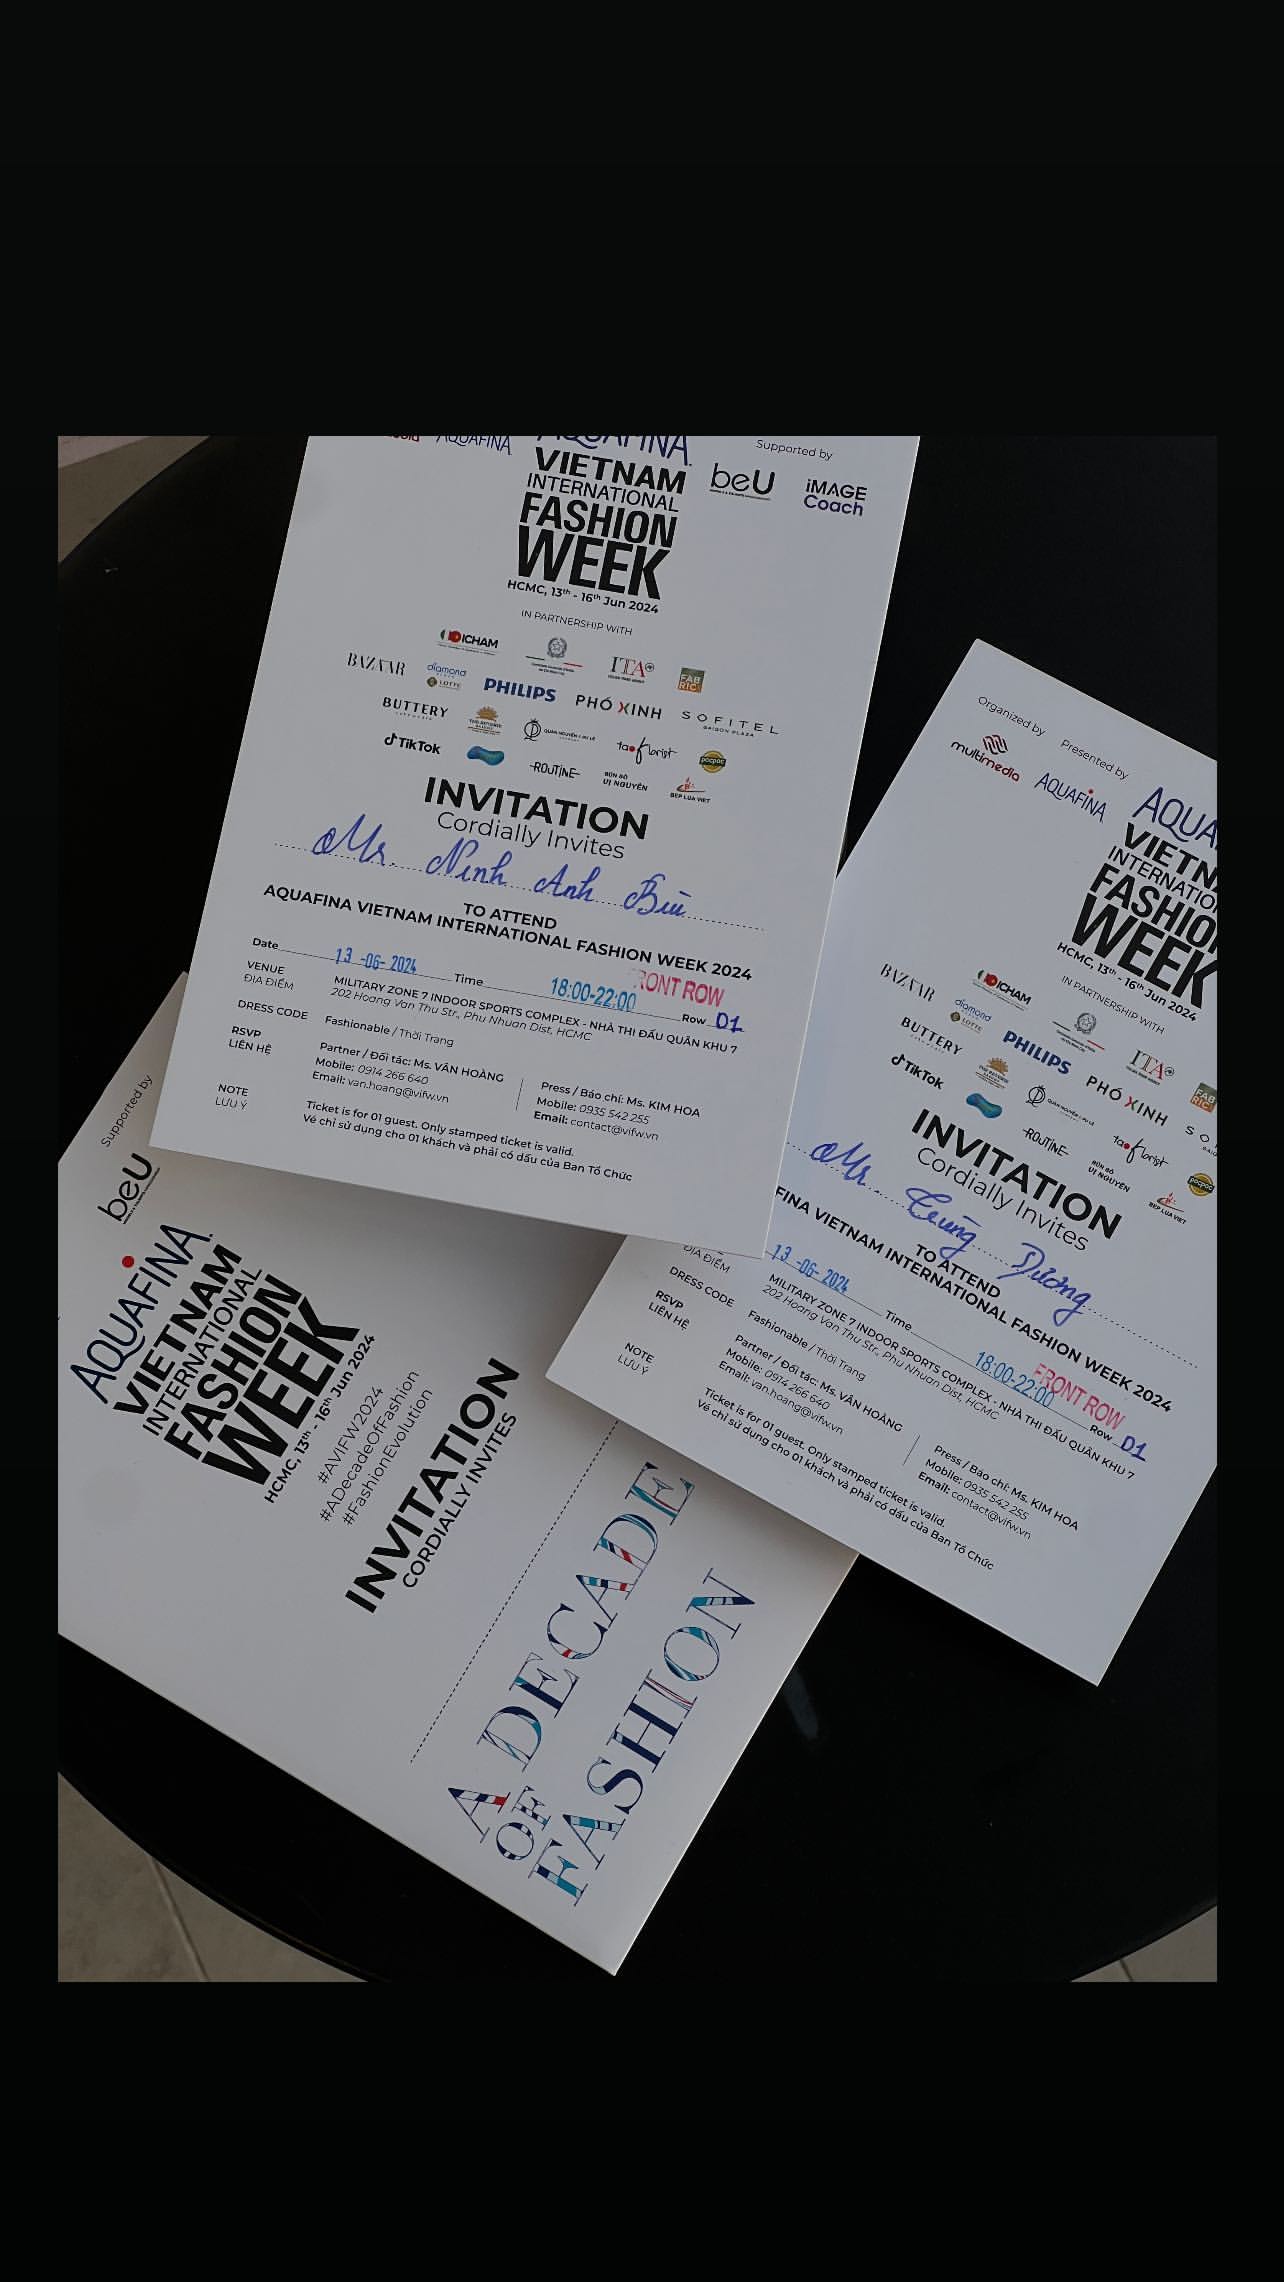 AQUAFINA
AQUAFINA
VIETNAM
INTERNATIONAL
FASHION
WEEK
HCMC, 13th - 16th Jun 2024
Supported by
beU
iMAGE
Coach
IN PARTNERSHIP WITH
ICHAM
ITA
FAB
RIC
BAZAAR
diamond
LOTTE
PHILIPS
PHÓ XINH
SOFITEL
SAIGON PLAZA
BUTTERY
taflorist
pocpoc
TikTok
ROUTINE
BÚN BÒ
VỊ NGUYÊN
BEP LUA VIET
INVITATION
Cordially Invites
Mr. Ninh Anh Bùi
TO ATTEND
AQUAFINA VIETNAM INTERNATIONAL FASHION WEEK 2024
Date 13 -06- 2024 Time 18:00-22:00
FRONT ROW
Row D1
VENUE
ĐỊA ĐIỂM
MILITARY ZONE 7 INDOOR SPORTS COMPLEX - NHÀ THI ĐẤU QUÂN KHU 7
202 Hoang Van Thu Str., Phu Nhuan Dist, HCMC
DRESS CODE
Fashionable / Thời Trang
RSVP
LIÊN HỆ
Partner / Đối tác: Ms. VÂN HOÀNG
Mobile: 0914 266 640
Email: van.hoang@vifw.vn
Press / Báo chí: Ms. KIM HOA
Mobile: 0935 542 255
Email: contact@vifw.vn
NOTE
LƯU Ý
Ticket is for 01 guest. Only stamped ticket is valid.
Vé chỉ sử dụng cho 01 khách và phải có dấu của Ban Tổ Chức
Organized by
multimedia
Presented by
AQUAFINA
AQUA
VIETN
INTERNATIO
FASHIO
WEEK
HCMC, 13th - 16th Jun 2024
IN PARTNERSHIP WITH
ICHAM
ITA
FAB
RIC
BAZAAR
diamond
LOTTE
PHILIPS
PHÓ XINH
SO
BUTTERY
taflorist
pocpoc
TikTok
ROUTINE
BÚN BÒ
VỊ NGUYÊN
BEP LUA VIET
INVITATION
Cordially Invites
Mr. Trùng Dương
TO ATTEND
FINA VIETNAM INTERNATIONAL FASHION WEEK 2024
13 -06- 2024 Time 18:00-22:00
FRONT ROW
Row D1
ĐỊA ĐIỂM
MILITARY ZONE 7 INDOOR SPORTS COMPLEX - NHÀ THI ĐẤU QUÂN KHU 7
202 Hoang Van Thu Str., Phu Nhuan Dist, HCMC
DRESS CODE
Fashionable / Thời Trang
RSVP
LIÊN HỆ
Partner / Đối tác: Ms. VÂN HOÀNG
Mobile: 0914 266 640
Email: van.hoang@vifw.vn
Press / Báo chí: Ms. KIM HOA
Mobile: 0935 542 255
Email: contact@vifw.vn
NOTE
LƯU Ý
Ticket is for 01 guest. Only stamped ticket is valid.
Vé chỉ sử dụng cho 01 khách và phải có dấu của Ban Tổ Chức
Supported by
beU
AQUAFINA
VIETNAM
INTERNATIONAL
FASHION
WEEK
HCMC, 13th - 16th Jun 2024
#AVIFW2024
#ADecadeOfFashion
#FashionEvolution
INVITATION
CORDIALLY INVITES
A DECADE
OF
FASHION